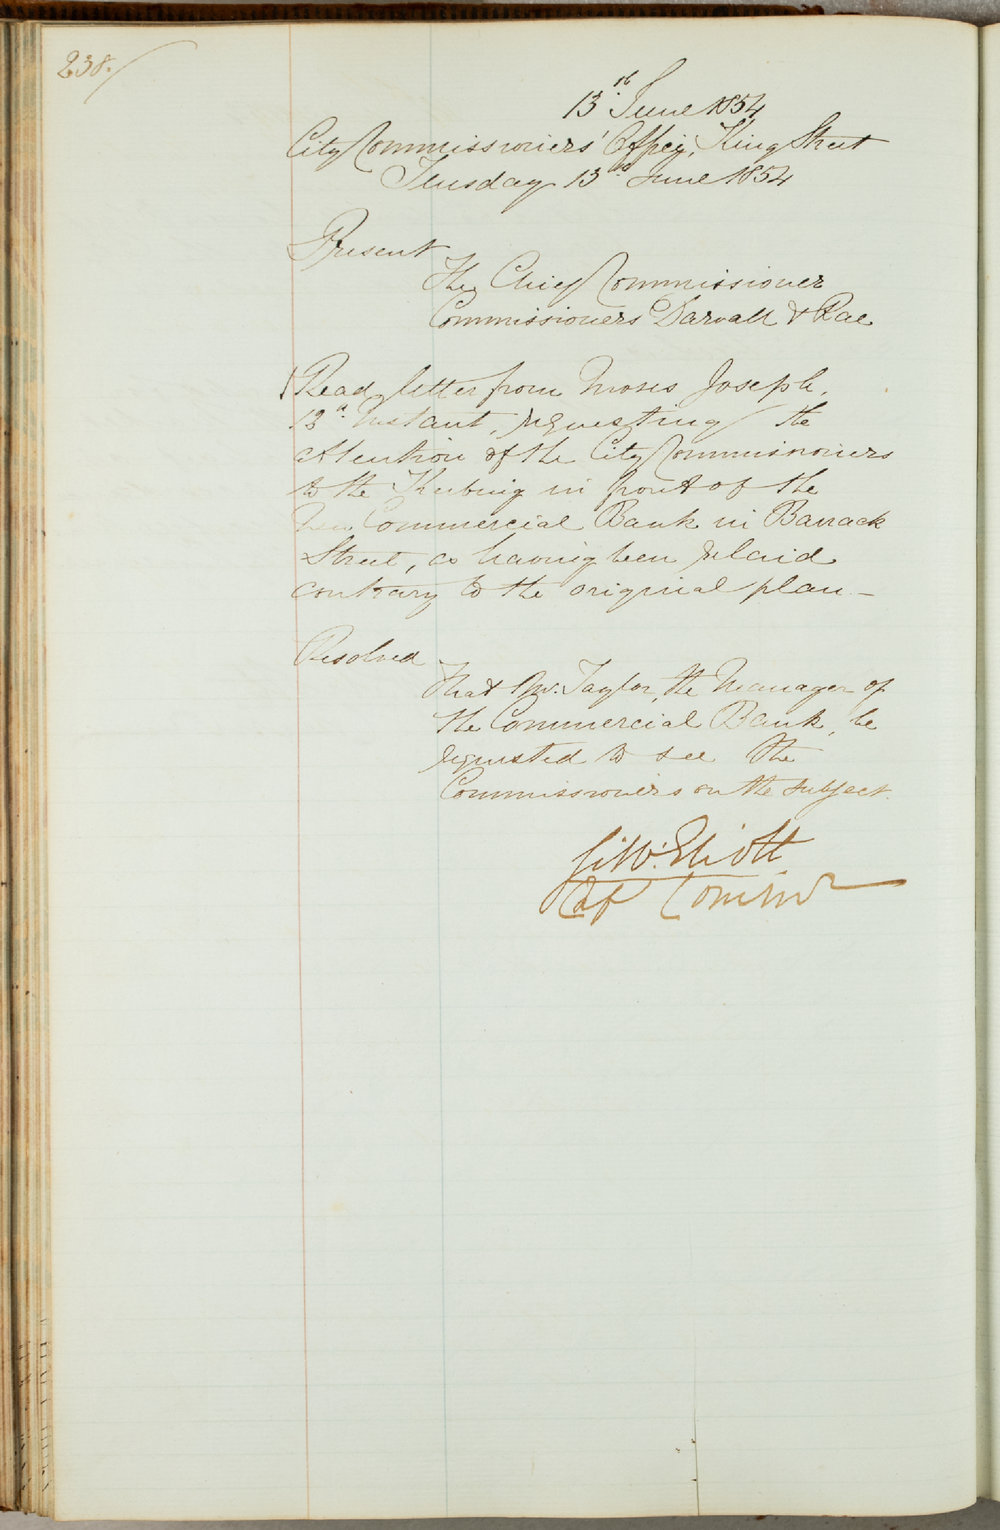 238.
13th June 1854
City Commissioners' Office, King Street
Tuesday 13th June 1854
Present
The Chief Commissioner
Commissioners Darvall & Rae
1 Read letter from Moses Joseph,
13th Instant, requesting the
attention of the City Commissioners
to the Kerbing in front of the
New Commercial Bank in Barrack
Street, as having been relaid
contrary to the original plan —
Resolved
That Mr. Taylor, the Manager of
the Commercial Bank, be
requested to see the
Commissioners on the subject.
G. W. Eliott